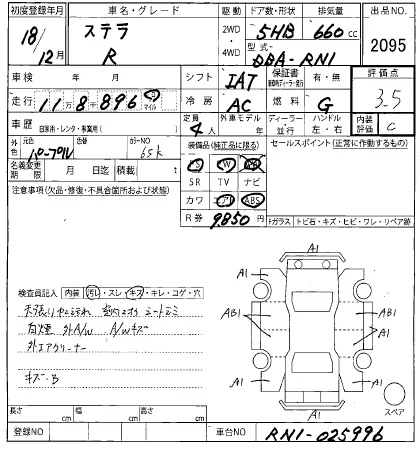 初度登録年月 車名・グレード 駆動 ドア数・形状 排気量 出品NO.
18/12月 ステラ R 2WD 4WD 5HB 660cc 2095
型式 DBA-RN1
車検 年 月 シフト IAT 保証書 有・無 評価点
走行 11万8896 マイル 冷房 AC 燃料 G 3.5
車歴 自家用・レンタ・事業用( ) 定員 4人 外車モデル年 ディーラー・並行 ハンドル 左・右 内装 C
外色 元色 パープル 色替 カラーNO 65K 装備品(純正品に限る) セールスポイント(正常に動作するもの)
名義変更期限 月 日迄 積載量 t
PS PW
SR TV ナビ
注意事項(欠品・修復・不具合箇所および状態) カワ エアB ABS
R券 9,850円
Fガラス トビ石・キズ・ヒビ・ワレ・リペア跡
A1
A1 A1
AB1 AB1
A1
A1 A1
A1
スペア
検査員記入 内装 汚れ・スレ・キズ・キレ・コゲ・穴
シートシミ
白煙 外A/W A/Wキズ
外エアクリーナー
キズ・B
長さ cm 幅 cm 高さ cm
登録NO 車台NO RN1-025996